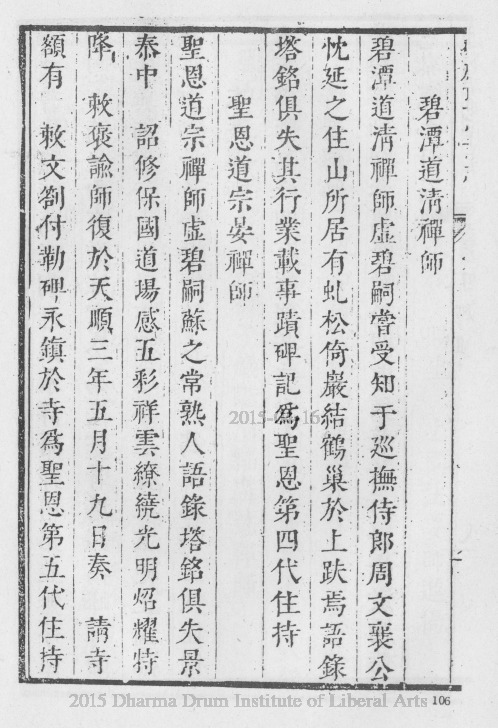 碧潭道淸禪師
碧潭道淸禪師虛碧嗣嘗受知于廵撫侍郎周文襄公
忱延之住山所居有虬松倚巖結鶴巢於上趺焉語錄
塔銘俱失其行業載事蹟碑記爲聖恩第四代住持
聖恩道宗晏禪師
聖恩道宗禪師虛碧嗣蘇之常熟人語錄塔銘俱失景
泰中 詔修保國道場感五彩祥雲繚繞光明炤耀特
降 敕褒諭師復於天順三年五月十九日奏 請寺
額有 敕文劄付勒碑永鎭於寺爲聖恩第五代住持
106
2015 Dharma Drum Institute of Liberal Arts